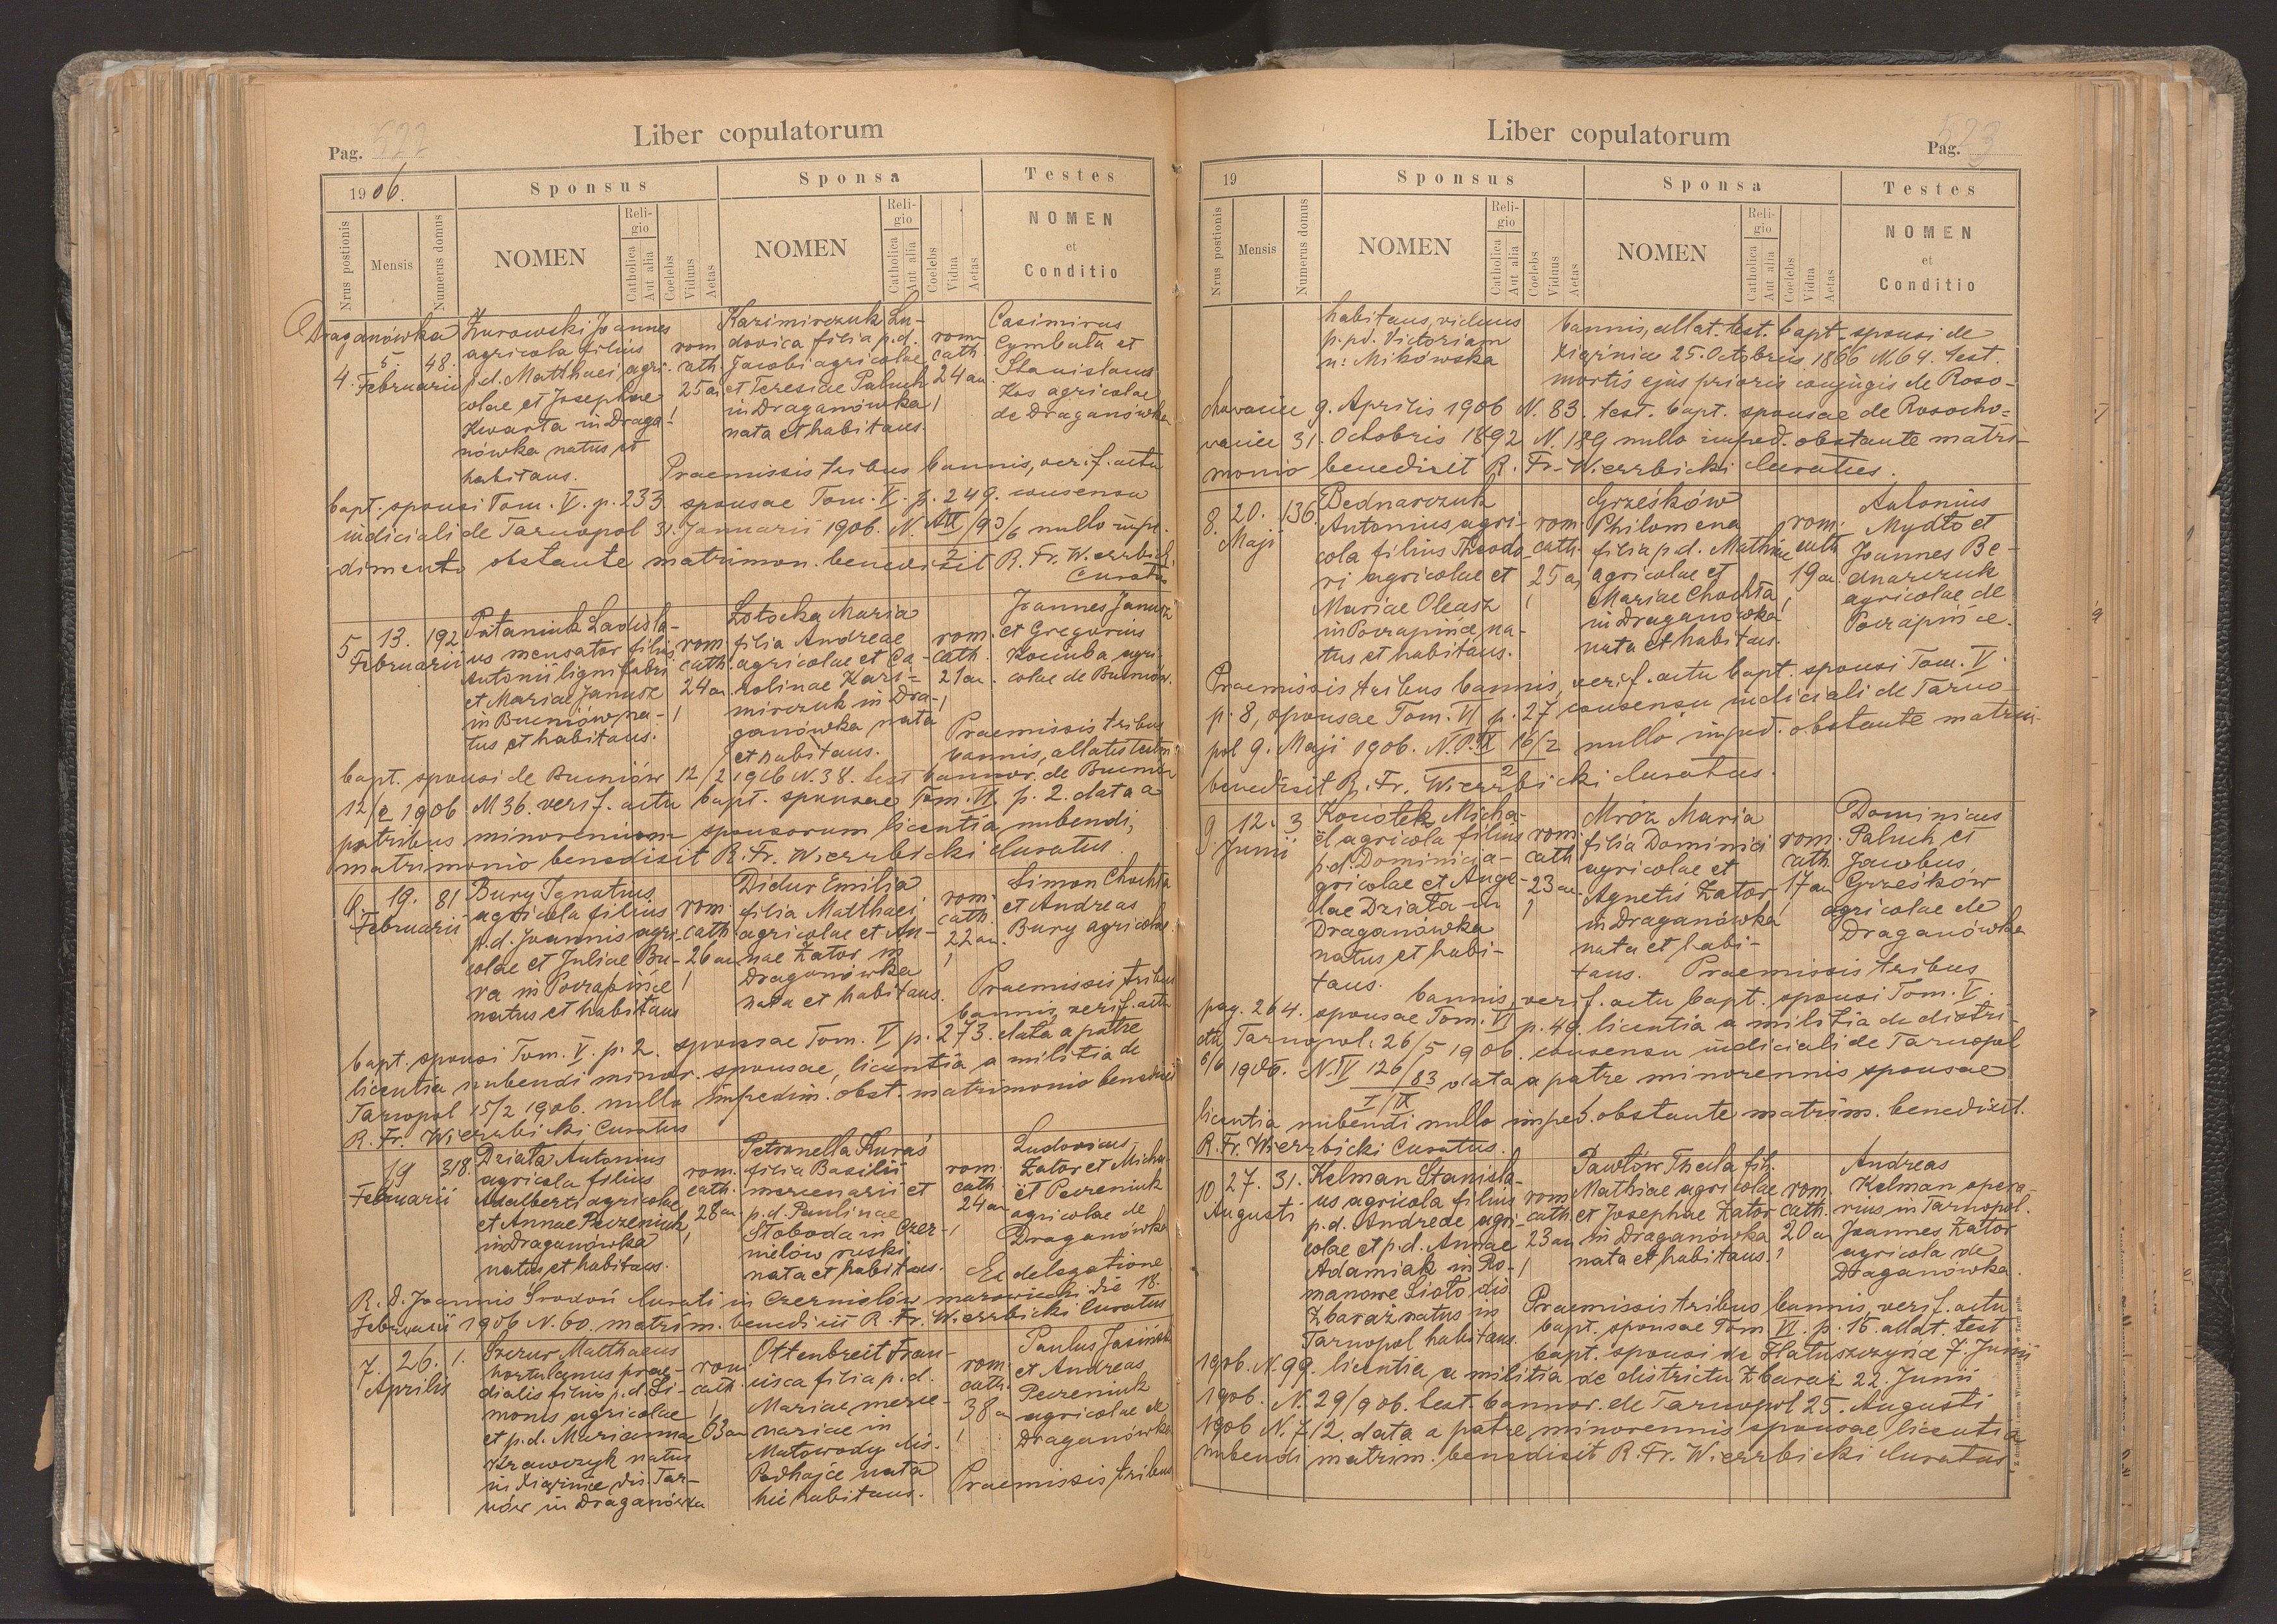 Pag. 522
Liber copulatorum
1906.
Sponsus
Sponsa
Testes
Nrus postionis
Mensis
Numerus domus
NOMEN
Religio
Catholica
Aut alia
Coelebs
Viduus
Aetas
NOMEN
Religio
Catholica
Aut alia
Coelebs
Vidua
Aetas
NOMEN
et
Conditio
Draganówka
4.
5
Februarii
48.
Żurowski Joannes
agricola filius
p.d. Matthaei agri-
colae et Josephae
Kwarta in Draga-
nówka natus et
habitans.
rom
cath.
25 an
!
Kazimirczuk Lu-
dovica filia p.d.
Jacobi agricolae
et Teresiae Paluch
in Draganówka
nata et habitans.
rom
cath.
24 an.
!
Casimirus
Cymbala et
Stanislaus
Kos agricolae
de Draganówka
Praemissis tribus bannis, verif. actu
bapt. sponsi Tom. V. p. 233 sponsae Tom. V. p. 249. consensu
iudiciali de Tarnopol 31. Januarii 1906. N. /6 nullo impe-
dimento obstante matrimon. benedixit R. Fr. Wierzbicki
Curatus
5
13.
Februarii
192
Pataniuk Ladisla-
us mensator filius
Antonii lignifabri
et Mariae Janusz
in Bucniów na-
tus et habitans.
rom
cath.
24 an.
!
Łotocka Maria
filia Andreae
agricolae et Ca-
rolinae Kazi-
mirczuk in Dra-
ganówka nata
et habitans.
rom.
cath.
21 an.
!
Joannes Janusz
et Gregorius
agri-
colae de Bucniów.
Praemissis tribus
bannis, allatis testim.
bapt. sponsi de Bucniów 12/2 1906 N. 38. test bannor. de Bucniów
12/2 1906 N 36. verif. actu bapt. sponsae Tom. VI. p. 2. data a
patribus minorennium sponsorum licentia nubendi,
matrimonio benedixit R. Fr. Wierzbicki Curatus.
6.
19.
Februarii
81
Bury Ignatius
agricola filius
p.d. Joannis agri-
colae et Juliae Bu-
ra in Poczapińce
natus et habitans
rom.
cath
26 an
!
Didur Emilia
filia Matthaei
agricolae et An-
nae Zator in
Draganówka
nata et habitans.
rom.
cath.
22 an.
!
Simon Chochta
et Andreas
Bury agricolae
Praemissis tribus
bannis, verif. actu
bapt. sponsi Tom. V. p. 2. sponsae Tom. V p. 273. data a patre
licentia nubendi minor. sponsae, licentia a militia de
Tarnopol 15/2 1906. nullo impedim. obst. matrimonio benedixit
R. Fr. Wierzbicki Curatus
19
Februarii
318.
Dziata Antonius
agricola filius
Adalberti agricolae
et Annae Peczeniuk
in Draganówka
natus et habitans.
rom.
cath.
28 an.
!
Petronella Kuraś
filia Basilii
mercenarii et
p.d. Paulinae
Słoboda in Czer-
nielów ruski
nata et habitans.
rom.
cath.
24 an
!
Ludovicus
Zator et Micha-
ël Peczeniuk
agricolae de
Draganówka
Ex delegatione
R. D. Joannis Środoń Curati in Czernielów mazowiecki die 18.
Februarii 1906 N. 60. matrim. benedixit R. Fr. Wierzbicki Curatus
7.
26.
Aprilis
1.
Szczur Matthaeus
hortulanus prae-
dialis filius p.d. Si-
monis agricolae
et p.d. Mariannae
Krawczyk natus
in Ziąrnice dis. Tar-
nów in Draganówka
rom.
cath.
!
63 an
Ottenbreit Fran-
cisca filia p.d.
Mariae merce-
nariae in
Małowody dis.
Podhajce nata
hic habitans.
rom.
cath.
38 a
!
Paulus Jasiński
et Andreas
Peczeniuk
agricolae de
Draganówka
Praemissis tribus
Liber copulatorum
Pag. 523
19
Sponsus
Sponsa
Testes
Nrus postionis
Mensis
Numerus domus
NOMEN
Religio
Catholica
Aut alia
Coelebs
Viduus
Aetas
NOMEN
Religio
Catholica
Aut alia
Coelebs
Vidua
Aetas
NOMEN
et
Conditio
habitans, viduus
p. pd. Victoriam
n: Mikówska
bannis, allat. test. bapt. sponsi de
Ziąrnice 25. Octobris 1866 N 64. test.
mortis ejus prioris conjugis de Roso-
chowaciec 9. Aprilis 1906 N. 83. test. bapt. sponsae de Rosocho-
waciec 31. Octobris 1892 N. 189 nullo imped. obstante matri-
monio benedixit R. Fr. Wierzbicki Curatus.
8.
20.
Maji
136.
Bednarczuk
Antonius agri-
cola filius Theodo-
ri agricolae et
Mariae Oleasz
in Poczapińce na-
tus et habitans.
rom
cath.
25 a
!
Grześków
Philomena
filia p.d. Mathiae
agricolae et
Mariae Chochta
in Draganówka
nata et habitans.
rom.
cath.
19 an.
!
Antonius
Mydło et
Joannes Be-
dnarczuk
agricolae de
Poczapińce.
Praemissis tribus bannis, verif. actu bapt. sponsi Tom. V.
p. 8, sponsae Tom. VI p. 27 consensu iudiciali de Tarno-
pol 9. Maji 1906. N. P. IX 16/2 nullo imped. obstante matrim.
2
benedixit R. Fr. Wierzbicki Curatus.
9.
12.
Junii
3
Konołek Micha-
ël agricola filius
p.d. Dominici a-
gricolae et Ange-
lae Dziata in
Draganówka
natus et habi-
tans.
rom.
cath.
23 an.
!
Mróz Maria
filia Dominici
agricolae et
Agnetis Zator
in Draganówka
nata et habi-
tans.
rom.
cath.
17 an
!
Dominicus
Paluch et
Jacobus
Grześków
agricolae de
Draganówka
Praemissis tribus
bannis, verif. actu bapt. sponsi Tom. V.
pag. 264. sponsae Tom. VI p. 49. licentia a militia de distri-
ctu Tarnopol: 26/5 1906. consensu iudiciali de Tarnopol
6/6 1906. N. IV 126/83 data a patre minorennis sponsae
I/IX
licentia nubendi nullo imped. obstante matrim. benedixit.
R. Fr. Wierzbicki Curatus.
10.
27.
Augusti
31.
Kelman Stanisla-
us agricola filius
p.d. Andreae agri-
colae et p.d. Annae
Adamiak in Ro-
manowe Sioło dis
Zbaraż natus in
Tarnopol habitans.
rom
cath.
23 an
!
Pawłów Thecla fil.
Mathiae agricolae
et Josephae Zator
in Draganówka
nata et habitans.
rom.
cath.
20 a
!
Andreas
Kelman opera-
rius in Tarnopol.
Joannes Zator
agricola de
Draganówka.
Praemissis tribus bannis, verif. actu
bapt. sponsae Tom VI. p. 15. allat. test
bapt. sponsi de Hłatuszczyńce 7. Junii
1906. N. 99. licentia a militia de districtu Zbaraż 22. Junii
1906. N. 29/906. test. bannor. de Tarnopol 25. Augusti
1906 N. 712. data a patre minorennis sponsae licentia
nubendi matrim. benedixit R. Fr. Wierzbicki Curatus